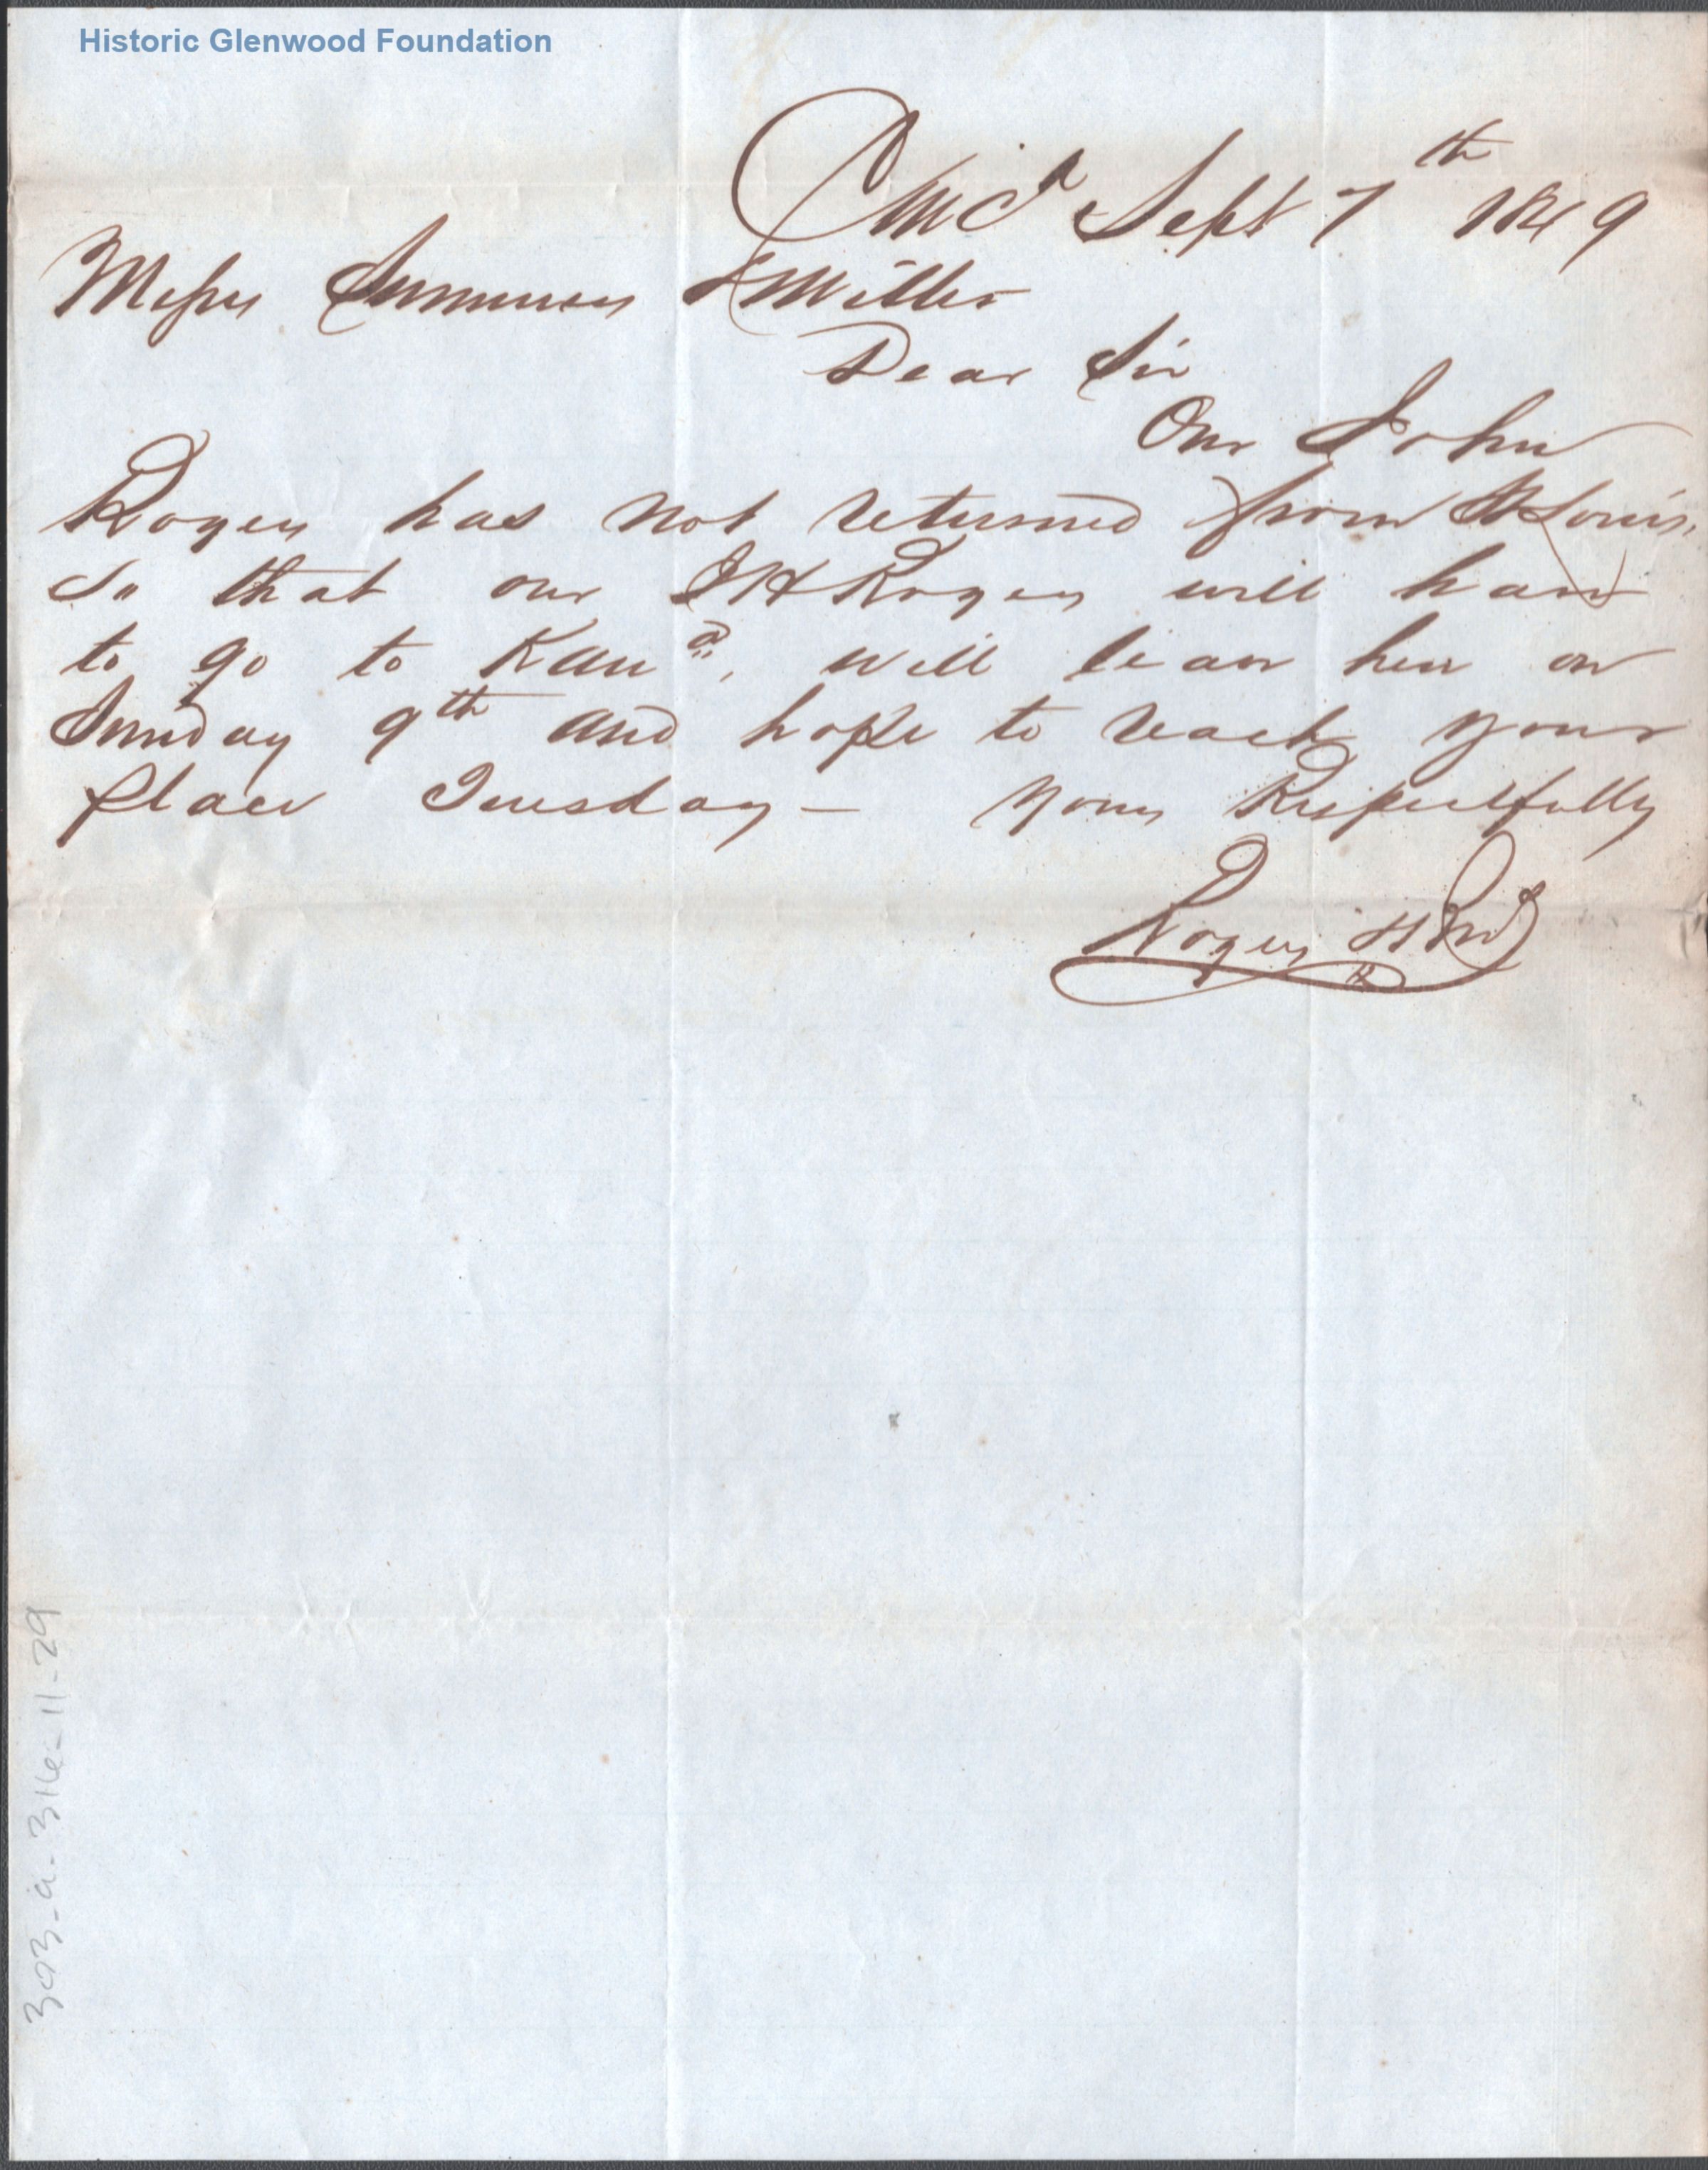 Historic Glenwood Foundation
Cin Oa Sept 7th 1849
Messrs Summers & Miller
Dear Sir
Our John
Rogers has not returned from St Louis,
So that our J H Rogers will have
to go to Kana, will leave here on
Sunday 9th and hope to reach your
place Tuesday – Yours Respectfully
Rogers
303-a-316-11-29